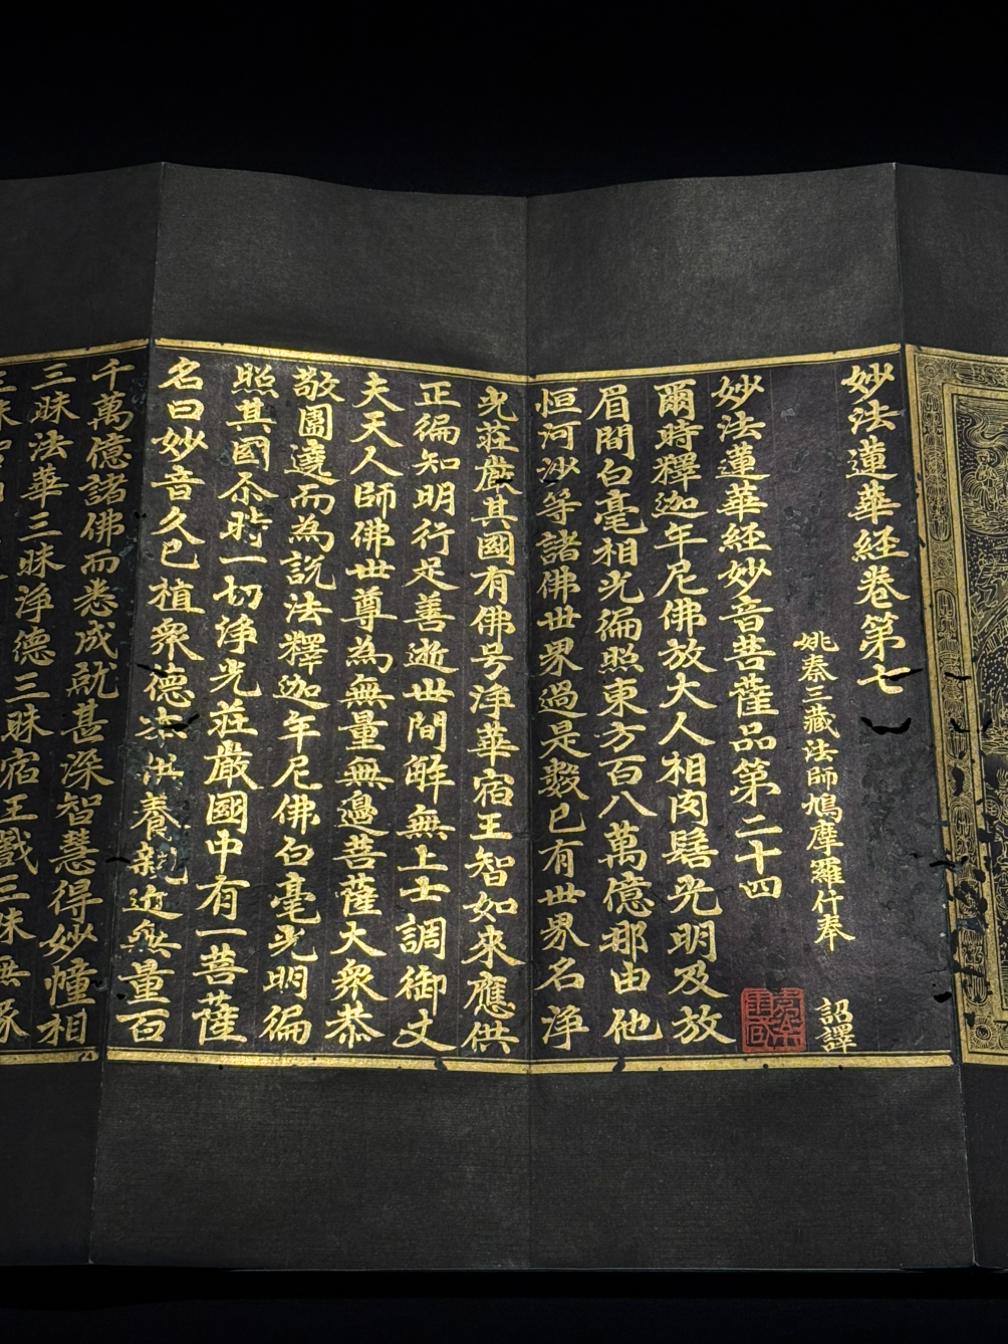 妙法蓮華經卷第七
姚秦三藏法師鳩摩羅什奉 詔譯
妙法蓮華經妙音菩薩品第二十四
爾時釋迦牟尼佛放大人相肉髻光明及放
眉間白毫相光徧照東方百八萬億那由他
恒河沙等諸佛世界過是數已有世界名淨
光莊嚴其國有佛号淨華宿王智如來應供
正徧知明行足善逝世間解無上士調御丈
夫天人師佛世尊為無量無邊菩薩大衆恭
敬圍遶而為說法釋迦牟尼佛白毫光明徧
照其國尒時一切淨光莊嚴國中有一菩薩
名曰妙音久已植衆德本供養親近無量百
千萬億諸佛而悉成就甚深智慧得妙幢相
三昧法華三昧淨德三昧宿王戲三昧無緣